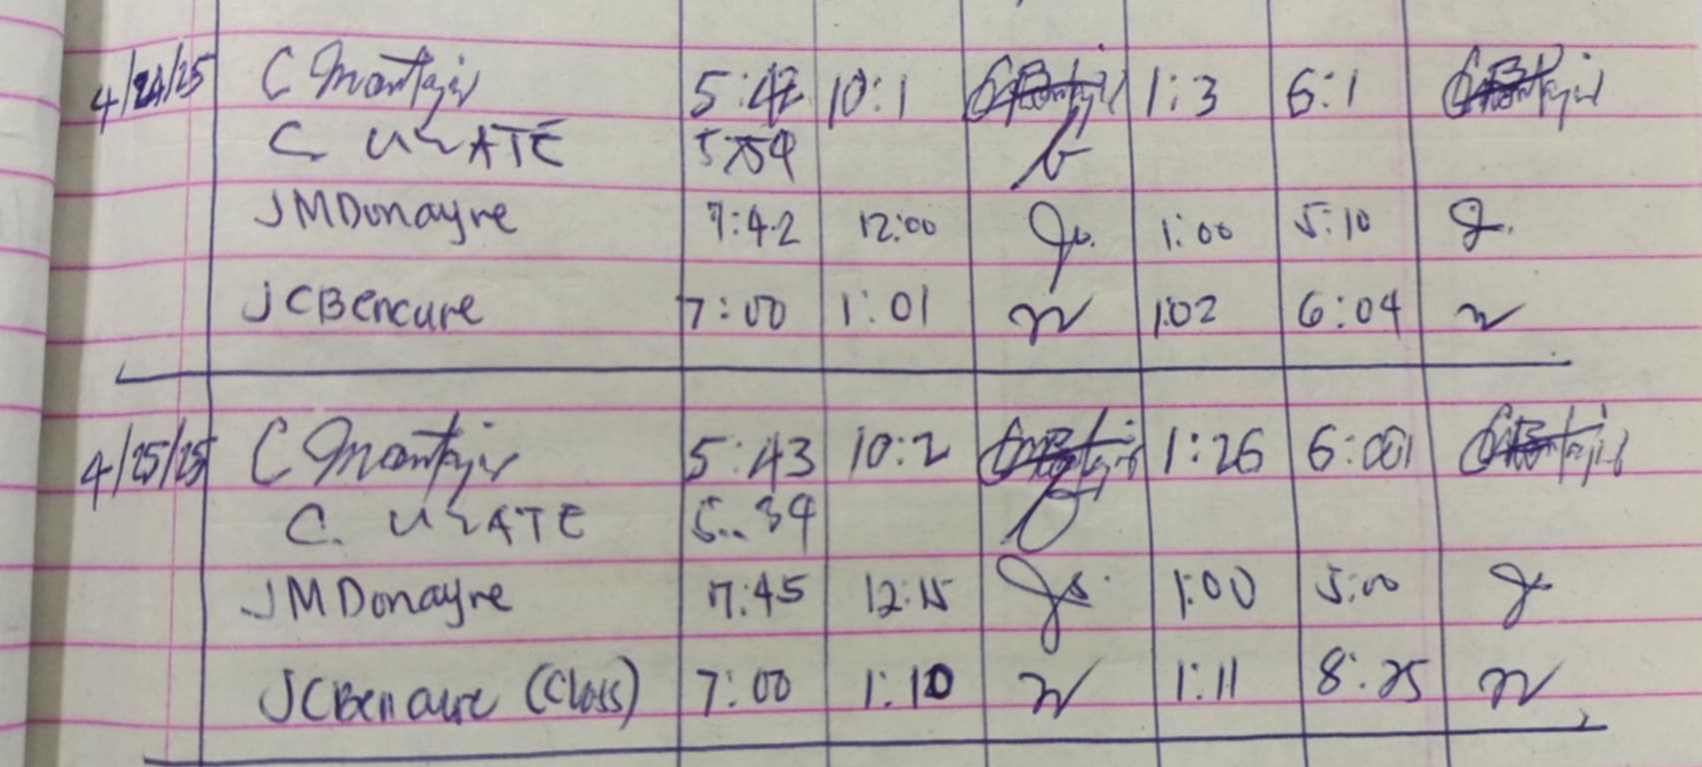 4/24/25 C Montejis 5:42 10:1 1:3 6:1
C URATE 5:59
JMDonayre 7:42 12:00 1:00 5:10
JCBencure 7:00 1:01 1:02 6:04
4/25/25 C Montejis 5:43 10:2 1:26 6:001
C. URATE 5:39
JMDonayre 7:45 12:15 1:00 5:00
JCBencure (Class) 7:00 1:10 1:11 8:25